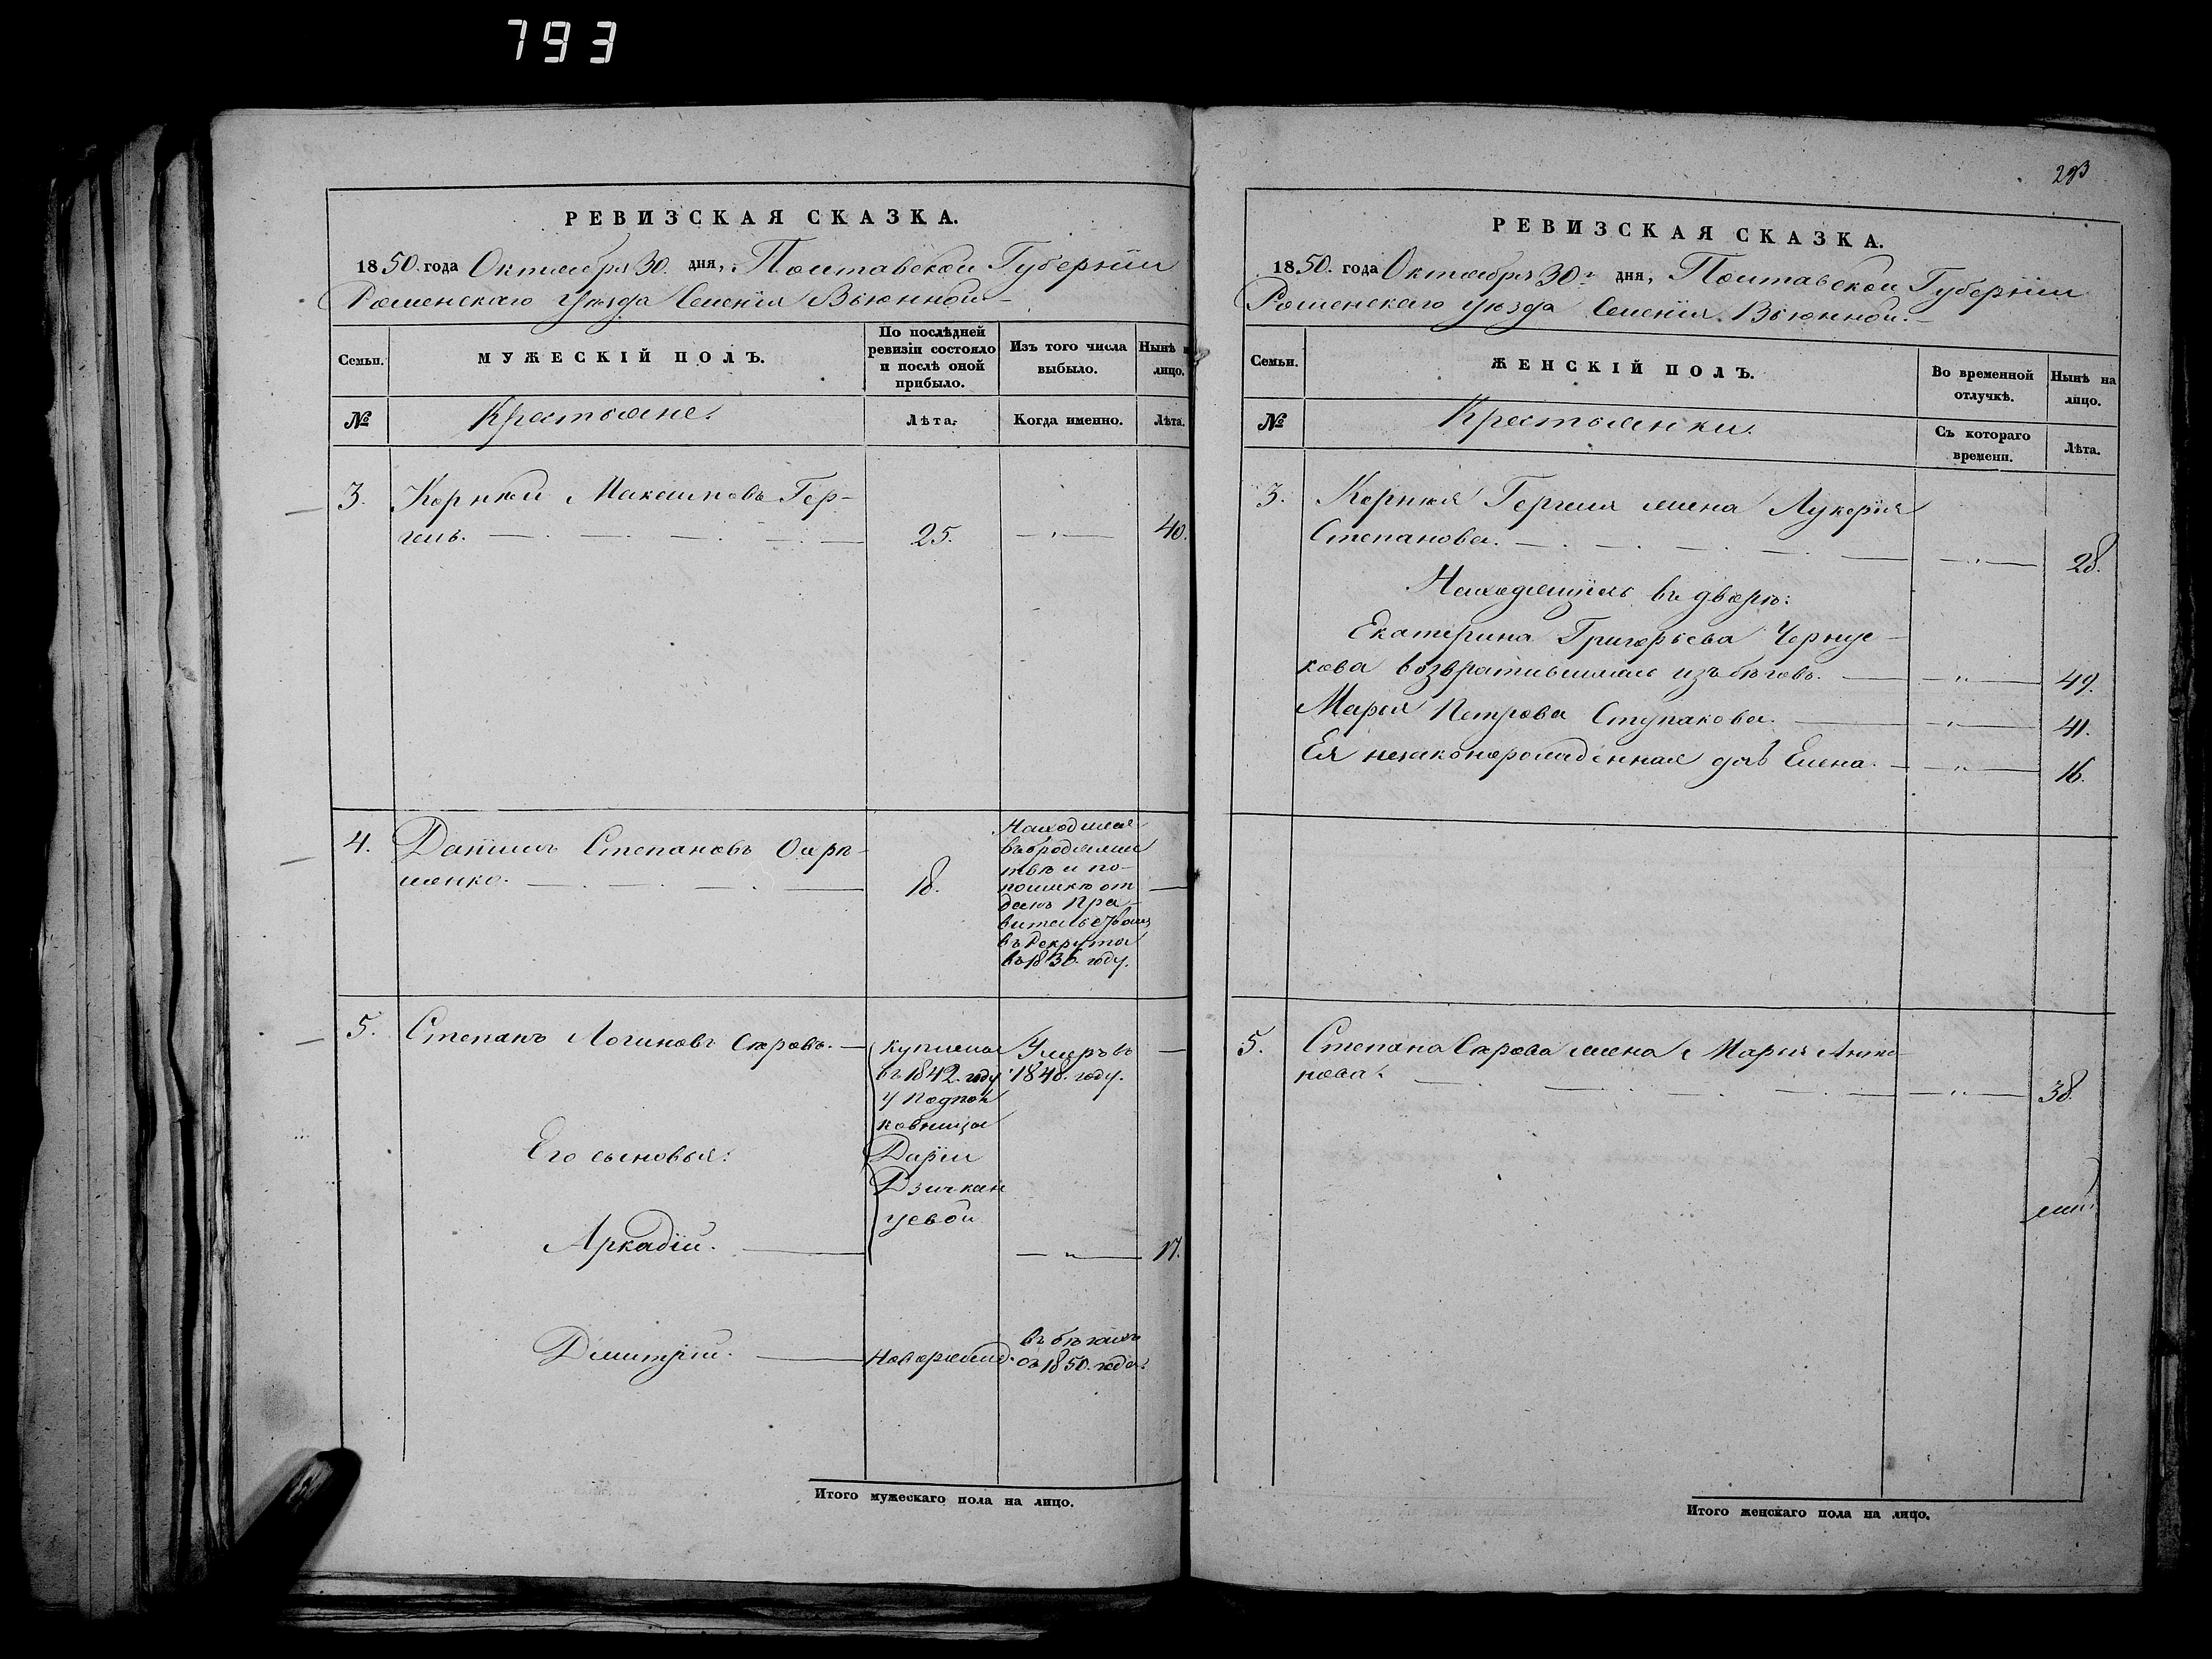 793
РЕВИЗСКАЯ СКАЗКА.
1850. года Октября 30. дня, Полтавской Губерніи
Роменскаго уѣзда Селенія Вьюнной
Семьи.
МУЖЕСКІЙ ПОЛЪ.
По послѣдней ревизіи состояло и послѣ оной прибыло.
Изъ того числа выбыло.
Нынѣ
лицо.
№
Крестьяне.
Лѣта.
Когда именно.
Лѣта.
3. Корнѣй Максимовъ Гер-
гель. 25. 40.
4. Даніилъ Степановъ
ленко. 18.
Находился
въ бродяжни
твѣ и по
поимкѣ от
данъ Пра-
вительствомъ
въ Рекруты
въ 1836. году.
5. Степанъ Логиновъ Сѣровъ.
куплены
въ 1842. году
у Подпол
ковницы
Даріи
Умеръ въ
1848. году.
Его сыновья:
Аркадій. 17.
Дмитрій. Новорожд.
въ бѣгахъ
съ 1850. года.
Итого мужескаго пола на лицо.
293
РЕВИЗСКАЯ СКАЗКА.
1850. года Октября 30. дня, Полтавской Губерніи
Роменскаго уѣзда Селенія Вьюнной.
Семьи.
ЖЕНСКІЙ ПОЛЪ.
Во временной отлучкѣ.
Нынѣ на лицо.
№
Крестьянки.
Съ котораго времени.
Лѣта.
3. Корнѣя Гергеля жена Лукерія
Степанова. 28.
Находящіяся въ дворѣ:
Екатерина Григорьева Черну
кова возвратившаяся изъ бѣговъ. 49.
Марья Петрова Ступакова. 41.
Ея незаконорожденная дочь Елена. 16.
5. Степана Сѣрова жена Марья Анто-
нова. 38.
Итого женскаго пола на лицо.